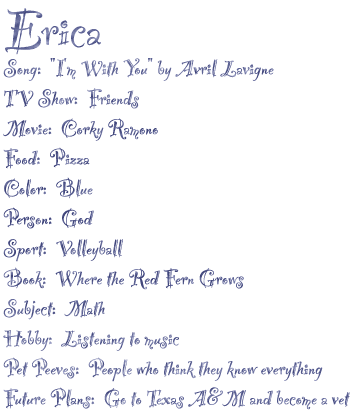 Erica
Song: "I'm With You" by Avril Lavigne
TV Show: Friends
Movie: Corky Ramono
Food: Pizza
Color: Blue
Person: God
Sport: Volleyball
Book: Where the Red Fern Grows
Subject: Math
Hobby: Listening to music
Pet Peeves: People who think they know everything
Future Plans: Go to Texas A&M and become a vet